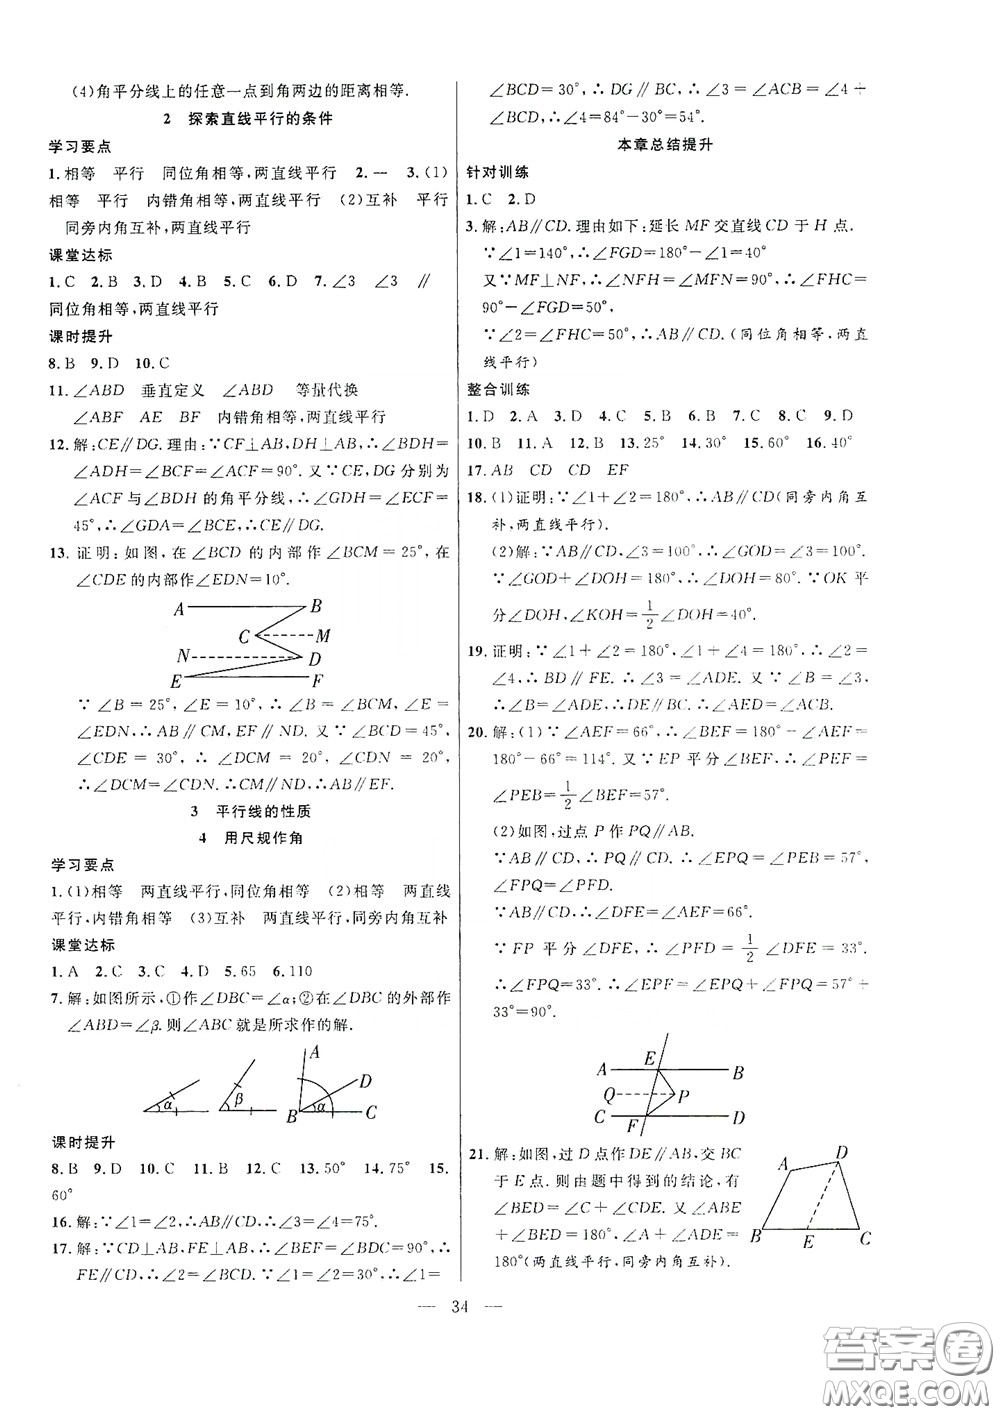 (4)角平分线上的任意一点到角两边的距离相等.
2 探索直线平行的条件
学习要点
1.相等 平行 同位角相等,两直线平行 2.一 3.(1)
相等 平行 内错角相等,两直线平行 (2)互补 平行
同旁内角互补,两直线平行
课堂达标
1.C 2.B 3.D 4.B 5.C 6.D 7.∠3 ∠3 ∥
同位角相等,两直线平行
课时提升
8.B 9.D 10.C
11.∠ABD 垂直定义 ∠ABD 等量代换
∠ABF AE BF 内错角相等,两直线平行
12.解:CE∥DG.理由:∵CF⊥AB,DH⊥AB,∴∠BDH=
∠ADH=∠BCF=∠ACF=90°.又∵CE,DG分别为
∠ACF与∠BDH的角平分线,∴∠GDH=∠ECF=
45°,∴∠GDA=∠BCE,∴CE∥DG.
13.证明:如图,在∠BCD的内部作∠BCM=25°,在
∠CDE的内部作∠EDN=10°.
A B
C M
N D
E F
∵∠B=25°,∠E=10°,∴∠B=∠BCM,∠E=
∠EDN,∴AB∥CM,EF∥ND.又∵∠BCD=45°,
∠CDE=30°,∴∠DCM=20°,∠CDN=20°,
∴∠DCM=∠CDN.∴CM∥ND,∴AB∥EF.
3 平行线的性质
4 用尺规作角
学习要点
1.(1)相等 两直线平行,同位角相等 (2)相等 两直线
平行,内错角相等 (3)互补 两直线平行,同旁内角互补
课堂达标
1.A 2.C 3.C 4.D 5.65 6.110
7.解:如图所示,①作∠DBC=∠α;②在∠DBC的外部作
∠ABD=∠β.则∠ABC就是所求作的解.
α β A D B α C
课时提升
8.B 9.D 10.C 11.B 12.C 13.50° 14.75° 15.
60°
16.解:∵∠1=∠2,∴AB∥CD,∴∠3=∠4=75°.
17.解:∵CD⊥AB,FE⊥AB,∴∠BEF=∠BDC=90°,∴
FE∥CD,∴∠2=∠BCD.∵∠1=∠2=30°,∴∠1=
∠BCD=30°,∴DG∥BC,∴∠3=∠ACB=∠4+
∠BCD,∴∠4=84°-30°=54°.
本章总结提升
针对训练
1.C 2.D
3.解:AB∥CD.理由如下:延长MF交直线CD于H点.
∵∠1=140°,∴∠FGD=180°-∠1=40°
又∵MF⊥NF,∴∠NFH=∠MFN=90°,∴∠FHC=
90°-∠FGD=50°,
∵∠2=∠FHC=50°,∴AB∥CD.(同位角相等,两直
线平行)
整合训练
1.D 2.A 3.D 4.C 5.B 6.B 7.C 8.C 9.D
10.B 11.A 12.B 13.25° 14.30° 15.60° 16.40°
17.AB CD CD EF
18.(1)证明:∵∠1+∠2=180°,∴AB∥CD(同旁内角互
补,两直线平行).
(2)解:∵AB∥CD,∠3=100°,∴∠GOD=∠3=100°.
∵∠GOD+∠DOH=180°,∴∠DOH=80°.∵OK平
分∠DOH,∠KOH=1/2∠DOH=40°.
19.证明:∵∠1+∠2=180°,∠1+∠4=180°,∴∠2=
∠4,∴BD∥FE.∴∠3=∠ADE.又∵∠B=∠3,
∴∠B=∠ADE,∴DE∥BC.∴∠AED=∠ACB.
20.解:(1)∵∠AEF=66°,∴∠BEF=180°-∠AEF=
180°-66°=114°.又∵EP平分∠BEF,∴∠AEP=
∠PEB=1/2∠BEF=57°.
(2)如图,过点P作PQ∥AB.
∵AB∥CD,∴PQ∥CD.∴∠EPQ=∠PEB=57°,
∠FPQ=∠PFD.
∵AB∥CD,∴∠DFE=∠AEF=66°.
∵FP平分∠DFE,∴∠PFD=1/2∠DFE=33°.
∴∠FPQ=33°.∴∠EPF=∠EPQ+∠FPQ=57°+
33°=90°.
E
A B
Q P
C F D
21.解:如图,过D点作DE∥AB,交BC
于E点.则由题中得到的结论,有
∠BED=∠C+∠CDE.又∠ABE
+∠BED=180°,∠A+∠ADE=
180°(两直线平行,同旁内角互补).
A D
B E C
— 34 —
答案圈
MXQE.COM